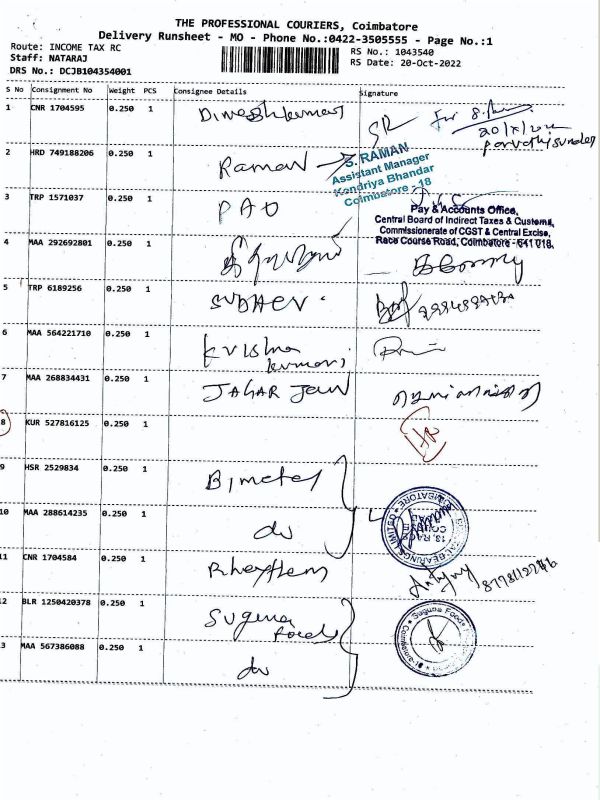 THE PROFESSIONAL COURIERS, Coimbatore
Delivery Runsheet - MO - Phone No.:0422-3505555 - Page No.:1
Route: INCOME TAX RC
RS No.: 1043540
Staff: NATARAJ
RS Date: 20-Oct-2022
DRS No.: DCJB104354001
S No Consignment No Weight PCS Consignee Details Signature
1 CNR 1704595 0.250 1 Dineshkumar
2 HRD 749188206 0.250 1 Raman
S. RAMAN
Assistant Manager
Kendriya Bhandar
Coimbatore - 18
3 TRP 1571037 0.250 1 PAO
Pay & Accounts Office,
Central Board of Indirect Taxes & Customs,
Commissionerate of CGST & Central Excise,
Race Course Road, Coimbatore - 641 018.
4 MAA 292692801 0.250 1
5 TRP 6189256 0.250 1
6 MAA 564221710 0.250 1 Krishna
kumari
7 MAA 268834431 0.250 1 JAHAR Jain
8 KUR 527816125 0.250 1
9 HSR 2529834 0.250 1 Bimetal
10 MAA 288614235 0.250 1 do
11 CNR 1704584 0.250 1
12 BLR 1250420378 0.250 1 Suguna
Foods
Suguna Foods
3 MAA 567386088 0.250 1 do